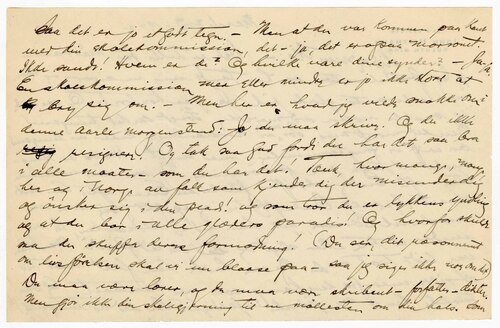 Saa det er jo et godt tegn. — Men at du var kommen paa kant
med din skolekommission, det – ja, det er ogsaa morsomt.
Ikke sandt! Hvem er de? Og hvilke være dine synder? – Ja, ja,
En skolekommission mer eller mindre er jo ikke stort at
bry sig om. – Men her er hvad jeg vilde snakke om i
denne aarle morgenstund: Ja, du maa skrive! Og du ikke
resignere! Og tak saa Gud fordi du har det, saa bra
i alle maater – som du har det! Tænk, hvor mange, mange
her og i Norge av folk som kjender dig der misunder dig
og ønsker sig i din sted! og som tror du er lykkens yndling
og at du bor i alle glæders paradis! Og hvorfor skulde
nu du skuffe deres formodning! (Du ser, dit ræsonnement
om livsførelsen skal vi nu blaase paa – saa jeg siger ikke noe om det)
Du maa være lærer, og du maa være skribent – forfatter – dikter.
Men gjør ikke din skolegjerning til en møllesten om din hals. Som